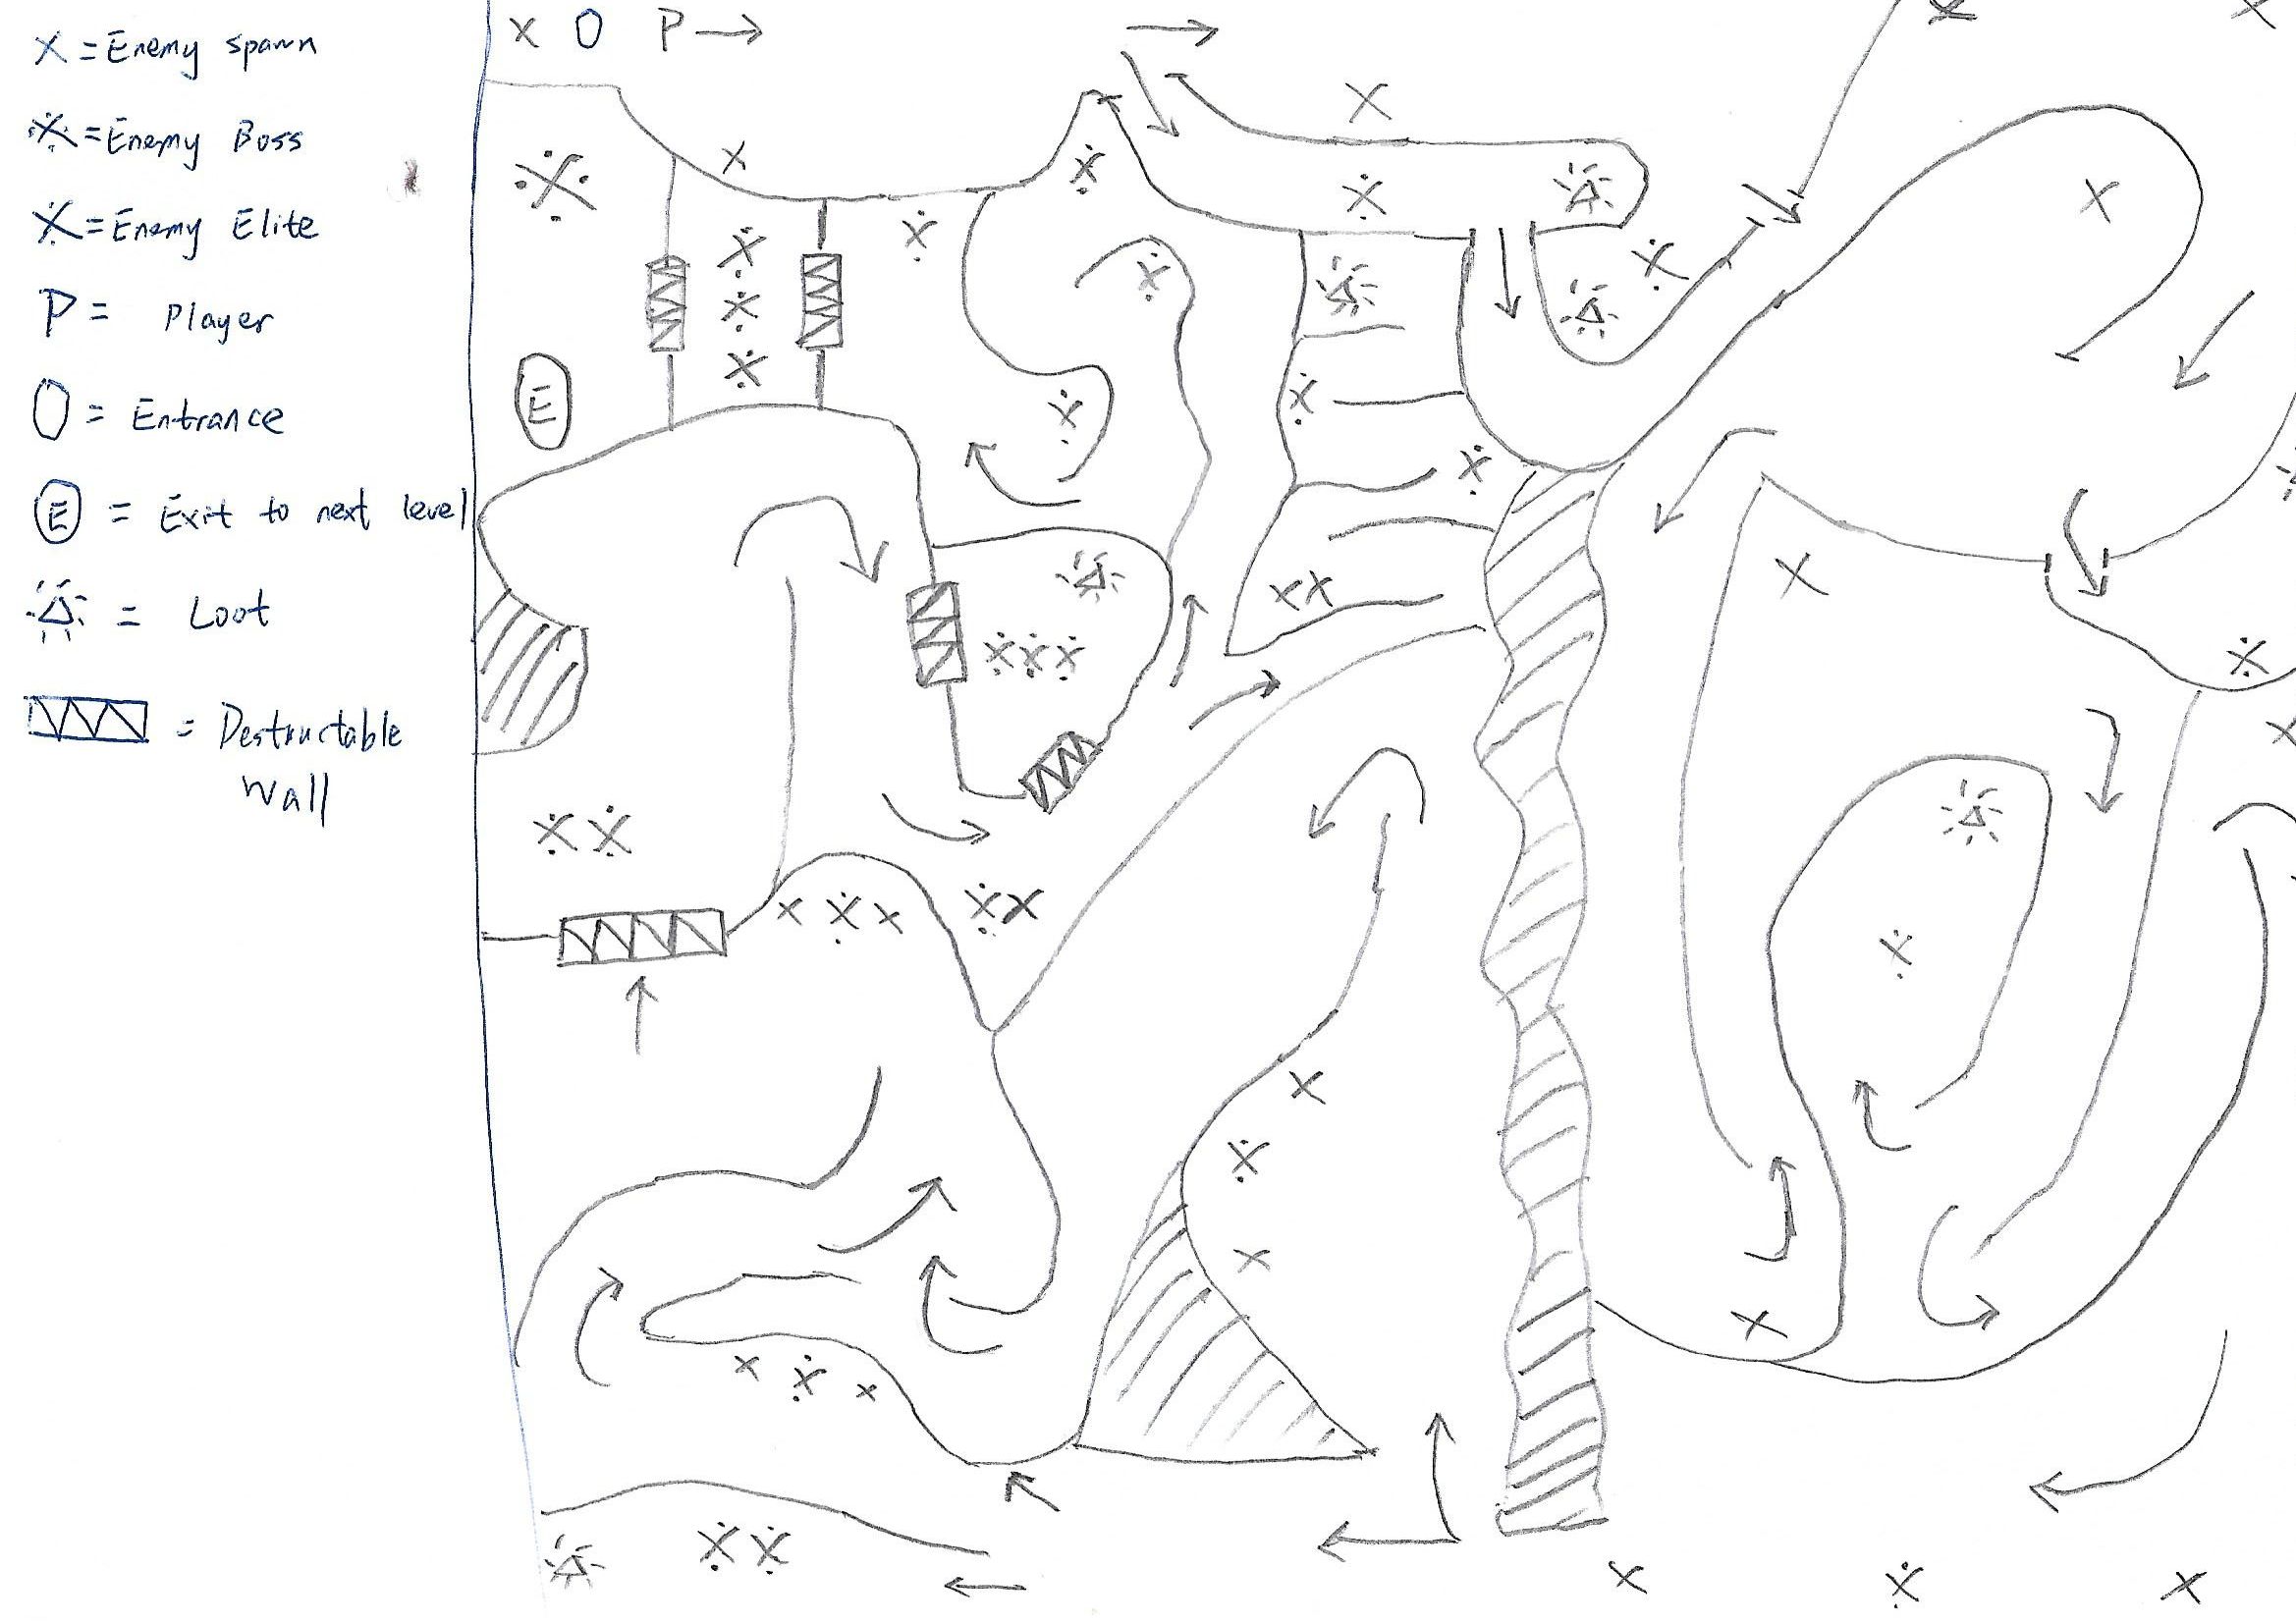 X = Enemy spawn
X = Enemy Boss
X = Enemy Elite
P = Player
O = Entrance
E = Exit to next level
= Loot
= Destructable
Wall
X O P
E